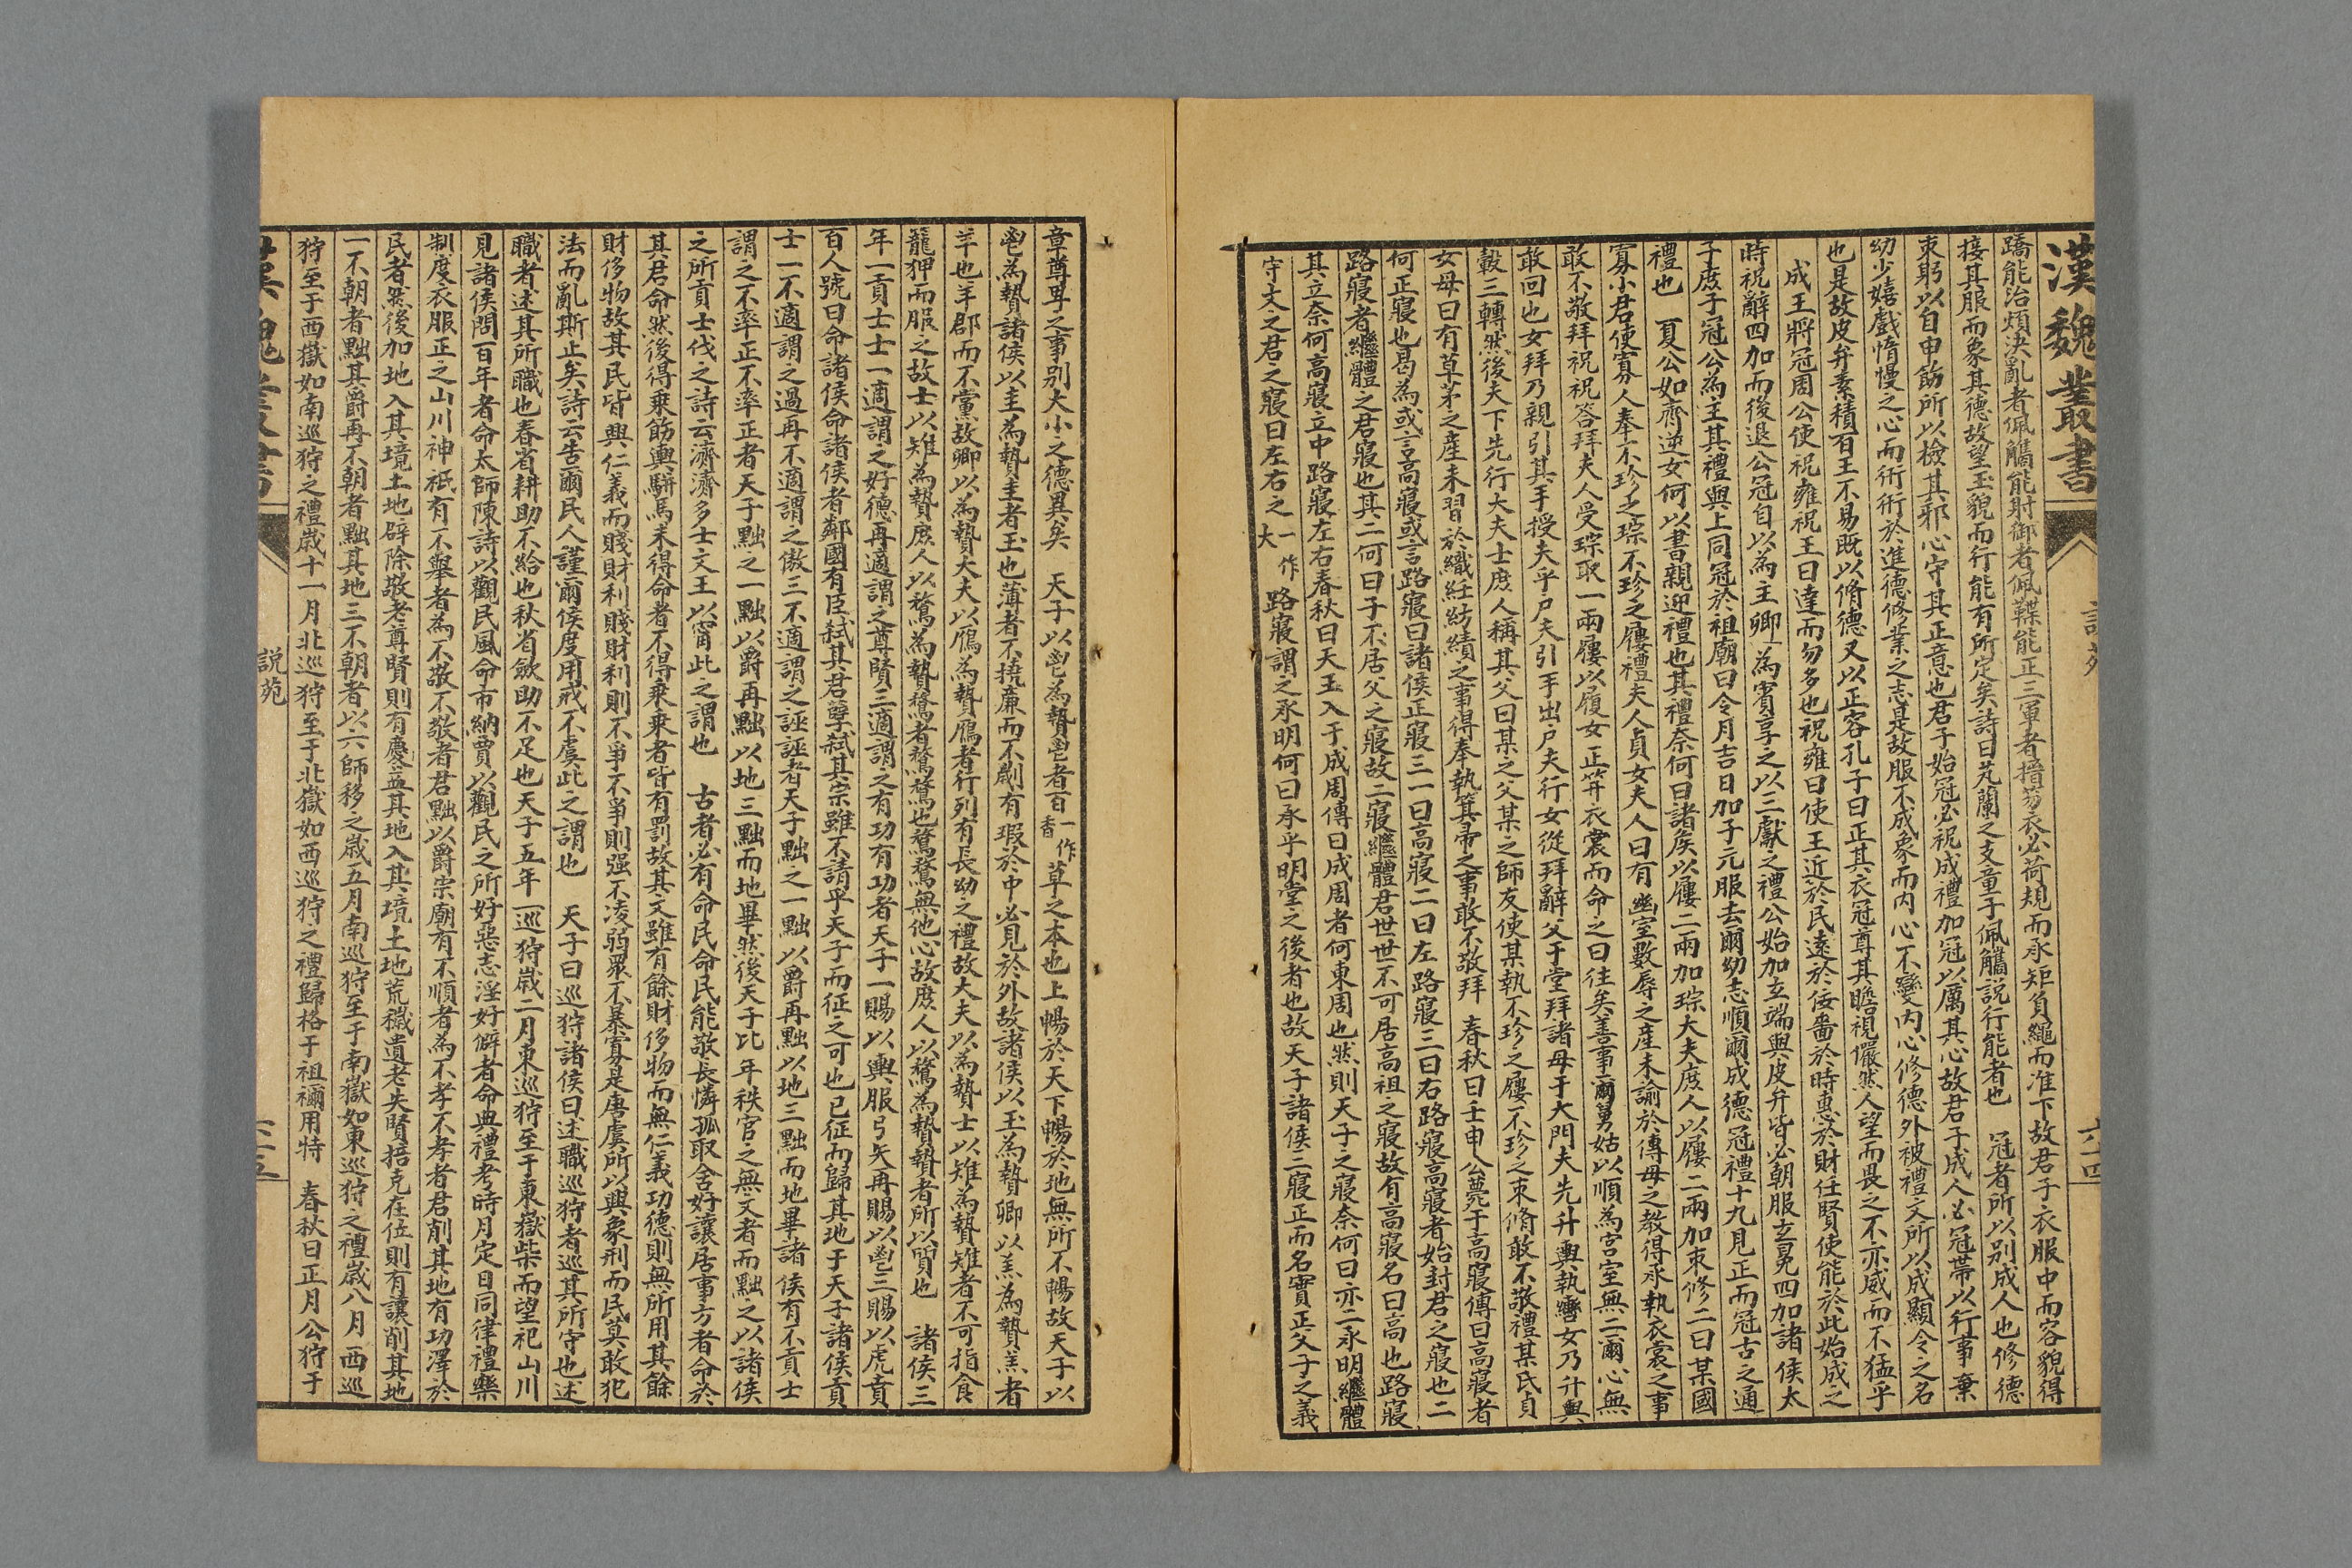 漢魏叢書
蹻能治煩決亂者佩觿能射御者佩韘能正三軍者搢笏衣必荷規而承矩負繩而准下故君子衣服中而容貌得
接其服而象其德故望玉貌而行能有所定矣詩曰芄蘭之支童子佩觿說行能者也 冠者所以別成人也修德
束躬以自申飭所以檢其邪心守其正意也君子始冠必祝成禮加冠以厲其心故君子成人必冠帶以行事棄
幼少嬉戲惰慢之心而衎衎於進德修業之志是故服不成象而內心不變內心修德外被禮文所以成顯令之名
也是故皮弁素積百王不易既以脩德又以正容孔子曰正其衣冠尊其瞻視儼然人望而畏之不亦威而不猛乎
成王將冠周公使祝雍祝王曰達而勿多也祝雍曰使王近於民遠於佞嗇於時惠於財任賢使能於此始成之
時祝辭四加而後退公冠自以為主卿為賓享之以三獻之禮公始加玄端與皮弁皆必朝服玄冕四加諸侯太
子庶子冠公為主其禮與上同冠於祖廟曰令月吉日加子元服去爾幼志順爾成德冠禮十九見正而冠古之通
禮也 夏公如齊逆女何以書親迎禮也其禮奈何曰諸侯以屨二兩加琮大夫庶人以屨二兩加束修二曰某國
寡小君使寡人奉不珍之琮不珍之屨禮夫人貞女夫人曰有幽室數辱之產未諭於傅母之教得承執衣裳之事
敢不敬拜祝祝答拜夫人受琮取一兩屨以履女正笄衣裳而命之曰往矣善事爾舅姑以順為宮室無二爾心無
敢回也女拜乃親引其手授夫乎戶夫引手出戶夫行女從拜辭父于堂拜諸母于大門夫先升輿執轡女乃升輿
轂三轉然後夫下先行大夫士庶人稱其父曰某之父某之師友使某執不珍之屨不珍之束脩敢不敬禮某氏貞
女母曰有草茅之產未習於織紝紡績之事得奉執箕帚之事敢不敬拜 春秋曰壬申公薨于高寢傳曰高寢者
何正寢也曷為或言高寢或言路寢曰諸侯正寢三一曰高寢二曰左路寢三曰右路寢高寢者始封君之寢也二
路寢者繼體之君寢也其二何曰子不居父之寢故二寢繼體君世世不可居高祖之寢故有高寢名曰高也路寢
其立奈何高寢立中路寢左右春秋曰天王入于成周傳曰成周者何東周也然則天子之寢奈何曰亦二承明繼體
守文之君之寢曰左右之一作大路寢謂之承明何曰承乎明堂之後者也故天子諸侯二寢正而名實正父子之義
章尊卑之事別大小之德異矣 天子以鬯為贄鬯者百一作香草之本也上暢於天下暢於地無所不暢故天子以
鬯為贄諸侯以圭為贄圭者玉也薄者不撓廉而不劌有瑕於中必見於外故諸侯以玉為贄卿以羔為贄羔者
羊也羊郡而不黨故卿以為贄大夫以鴈為贄鴈者行列有長幼之禮故大夫以為贄士以雉為贄雉者不可指食
籠狎而服之故士以雉為贄庶人以鶩為贄鶩者鶩鶩也鶩鶩無他心故庶人以鶩為贄贄者所以質也 諸侯三
年一貢士士一適謂之好德再適謂之尊賢三適謂之有功有功者天子一賜以輿服弓矢再賜以鬯三賜以虎賁
百人號曰命諸侯命諸侯者鄰國有臣弒其君孽弒其宗雖不請乎天子而征之可也已征而歸其地于天子諸侯貢
士一不適謂之過再不適謂之傲三不適謂之誣誣者天子黜之一黜以爵再黜以地三黜而地畢諸侯有不貢士
謂之不率正不率正者天子黜之一黜以爵再黜以地三黜而地畢然後天子比年秩官之無文者而黜之以諸侯
之所貢士伐之詩云濟濟多士文王以甯此之謂也 古者必有命民命民能敬長憐孤取舍好讓居事方者命於
其君命然後得乗飭輿駢馬未得命者不得乗乗者皆有罰故其文雖有餘財侈物而無仁義功德則無所用其餘
財侈物故其民皆興仁義而賤財利賤財利則不爭不爭則强不凌弱眾不暴寡是唐虞所以興象刑而民莫敢犯
法而亂斯止矣詩云告爾民人謹爾侯度用戒不虞此之謂也 天子曰巡狩諸侯曰述職巡狩者巡其所守也述
職者述其所職也春省耕助不給也秋省斂助不足也天子五年一巡狩歲二月東巡狩至于東嶽柴而望祀山川
見諸侯問百年者命太師陳詩以觀民風命市納賈以觀民之所好惡志淫好僻者命典禮考時月定日同律禮樂
制度衣服正之山川神祇有不舉者為不敬不敬者君黜以爵宗廟有不順者為不孝不孝者君削其地有功澤於
民者然後加地入其境土地辟除敬老尊賢則有慶益其地入其境土地荒穢遺老失賢掊克在位則有讓削其地
一不朝者黜其爵再不朝者黜其地三不朝者以六師移之歲五月南巡狩至于南嶽如東巡狩之禮歲八月西巡
狩至于西嶽如南巡狩之禮歲十一月北巡狩至于北嶽如西巡狩之禮歸格于祖禰用特 春秋曰正月公狩于
說苑